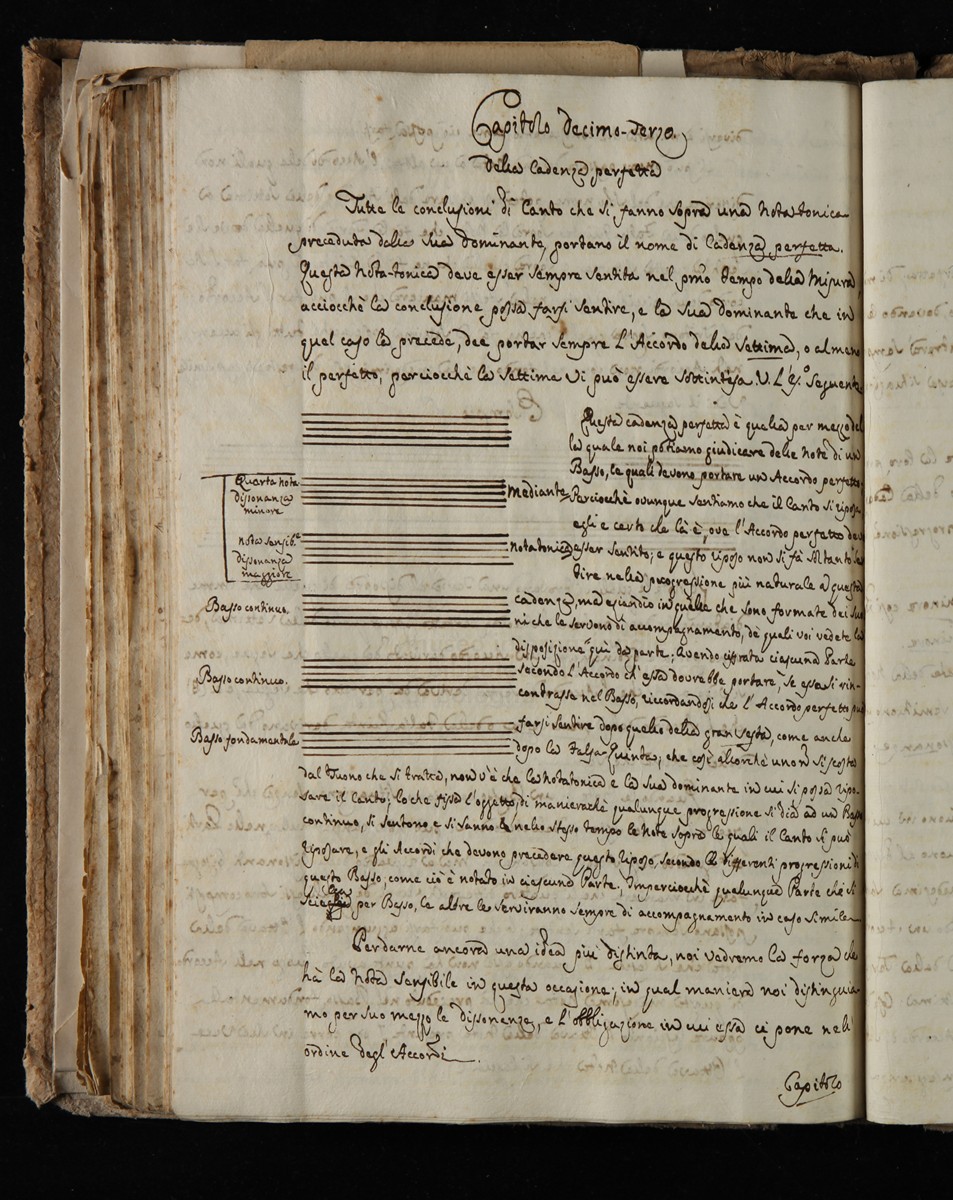 Capitolo decimo-terzo.
Della Cadenza perfetta
Tutte le conclusioni di Canto che si fanno sopra una nota tonica
preceduta dalla sua dominante, portano il nome di Cadenza perfetta.
Questa nota-tonica deve esser sempre sentita nel pmo tempo della Misura
acciocchè la conclusione possa farsi sentire, e la sua dominante che in
qual caso la precede, dee portar sempre l'Accordo della Settima, o almeno
il perfetto, perciocchè la settima vi può essere sottintesa. V. l'es.o seguente
Questa cadenza perfetta è quella per mezzo del
la quale noi potiamo giudicare delle note di un
Basso, le quali devono portare un Accordo perfetto.
Quarta nota
dissonanza
minore
Mediante
Perciocchè ovunque sentiamo che il Canto si riposa
egli è certo che là è, ove l'Accordo perfetto dee
nota sensib.e
dissonanza
maggiore
nota tonica
esser sentito; e questo riposo non si fà soltanto sen
tire nella progressione più naturale a questa
Basso continuo.
cadenza, ma eziandio in quelle che sono formate dei suo
ni che le servono di accompagnamento, de quali voi vedete la
disposizione quì da parte; Avendo cifrata ciascuna Parte
Basso continuo.
secondo l'Accordo ch'essa dovrebbe portare, se essa si rin-
contrasse nel Basso, riccordandosi che l'Accordo perfetto può
farsi sentire dopo quello della gran sesta, come anche
Basso fondamentale
dopo la falsa-Quinta, che così allorchè uno si scosta
dal Tuono che si tratta, non v'è che la nota tonica e la sua dominante in cui si possa ripo-
sare il Canto; lo che fissa l'oggetto di manierachè qualunque progressione si dia ad un Basso
continuo, si sentono e si sanno nello stesso tempo le note sopra le quali il Canto si può
riposare, e gli Accordi che devono precedere questo riposo, secondo le differenti progressioni di
questo Basso, come ciò è notato in ciascuna Parte. Imperciocchè qualunque Parte che si
scielga per Basso, le altre le serviranno sempre di accompagnamento in caso simile
Per darne ancora una idea più distinta, noi vedremo la forza che
hà la nota sensibile in questa occasione; in qual maniera noi distinguia
mo per suo mezzo le dissonenze, e l'obbligazione in cui essa ci pone nell'
ordine degl'Accordi.
Capitolo